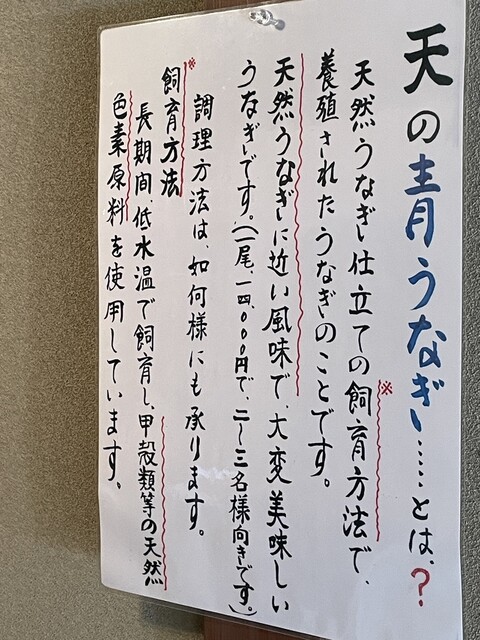 天の青うなぎ……とは、?
天然うなぎ仕立ての飼育方法で、
※
養殖されたうなぎのことです。
天然うなぎに近い風味で、大変美味しい
うなぎです。(一尾、一四、〇〇〇円で、二～三名様向きです。)
調理方法は、如何様にも承ります。
※
飼育方法
長期間、低水温で飼育し、甲殻類等の天然
色素原料を使用しています。